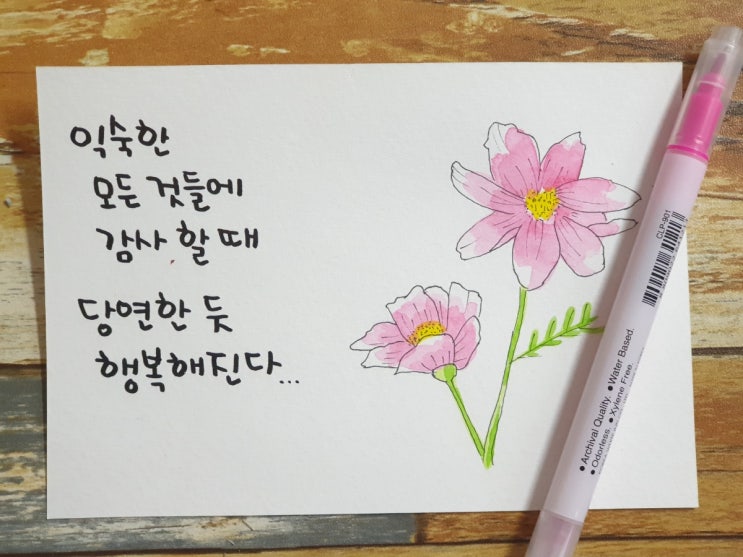 익숙한
모든 것들에
감사 할 때
당연한 듯
행복해진다...
CLP-901
● Archival Quality. ● Water Based.
● Odorless. ● Xylene Free.